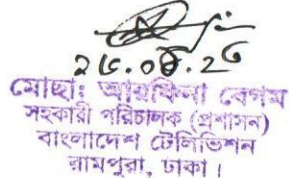 ২৫.০৪.২৫
মোছা: আরফিনা বেগম
সহকারী পরিচালক (প্রশাসন)
বাংলাদেশ টেলিভিশন
রামপুরা, ঢাকা।